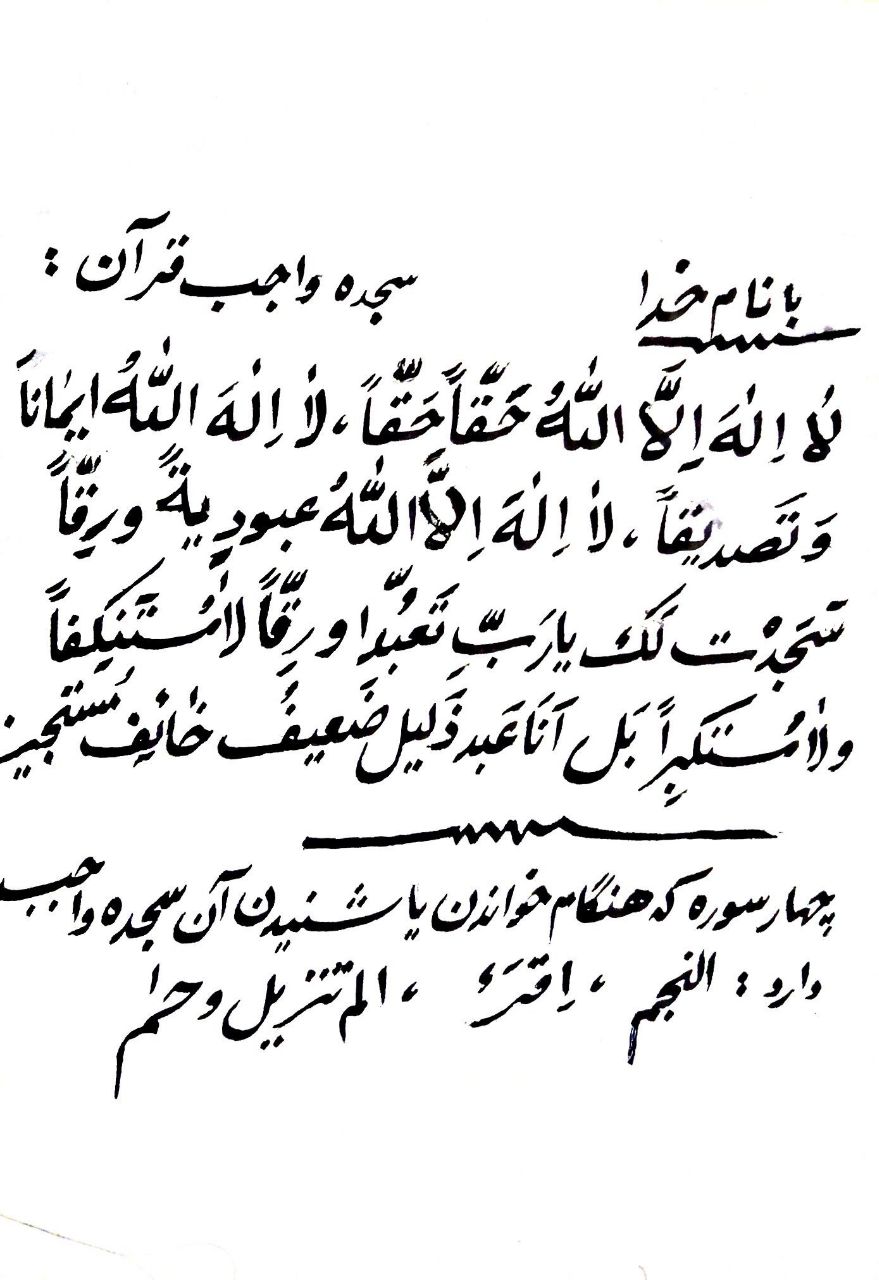 با نام خدا
سجده واجب قرآن :
لا اِلٰهَ اِلَّا اللهُ حَقّاً حَقّاً، لا اِلٰهَ اللهُ ایماناً
وَ تَصدیقاً، لا اِلٰهَ اِلَّا اللهُ عبودیةً ورِقّاً
سَجَدْت لَکَ یارَبِّ تَعَبُّدا ورِقّاً لامُستَنکِفاً
ولامُستَکبِراً بَل اَنَا عَبد ذَلیل ضَعیفُ خائِف مُستَجیر
چهار سوره که هنگام خواندن یا شنیدن آن سجده واجب
دارد : النجم ، اِقتَرَء ، الم تنزیل و حٰم